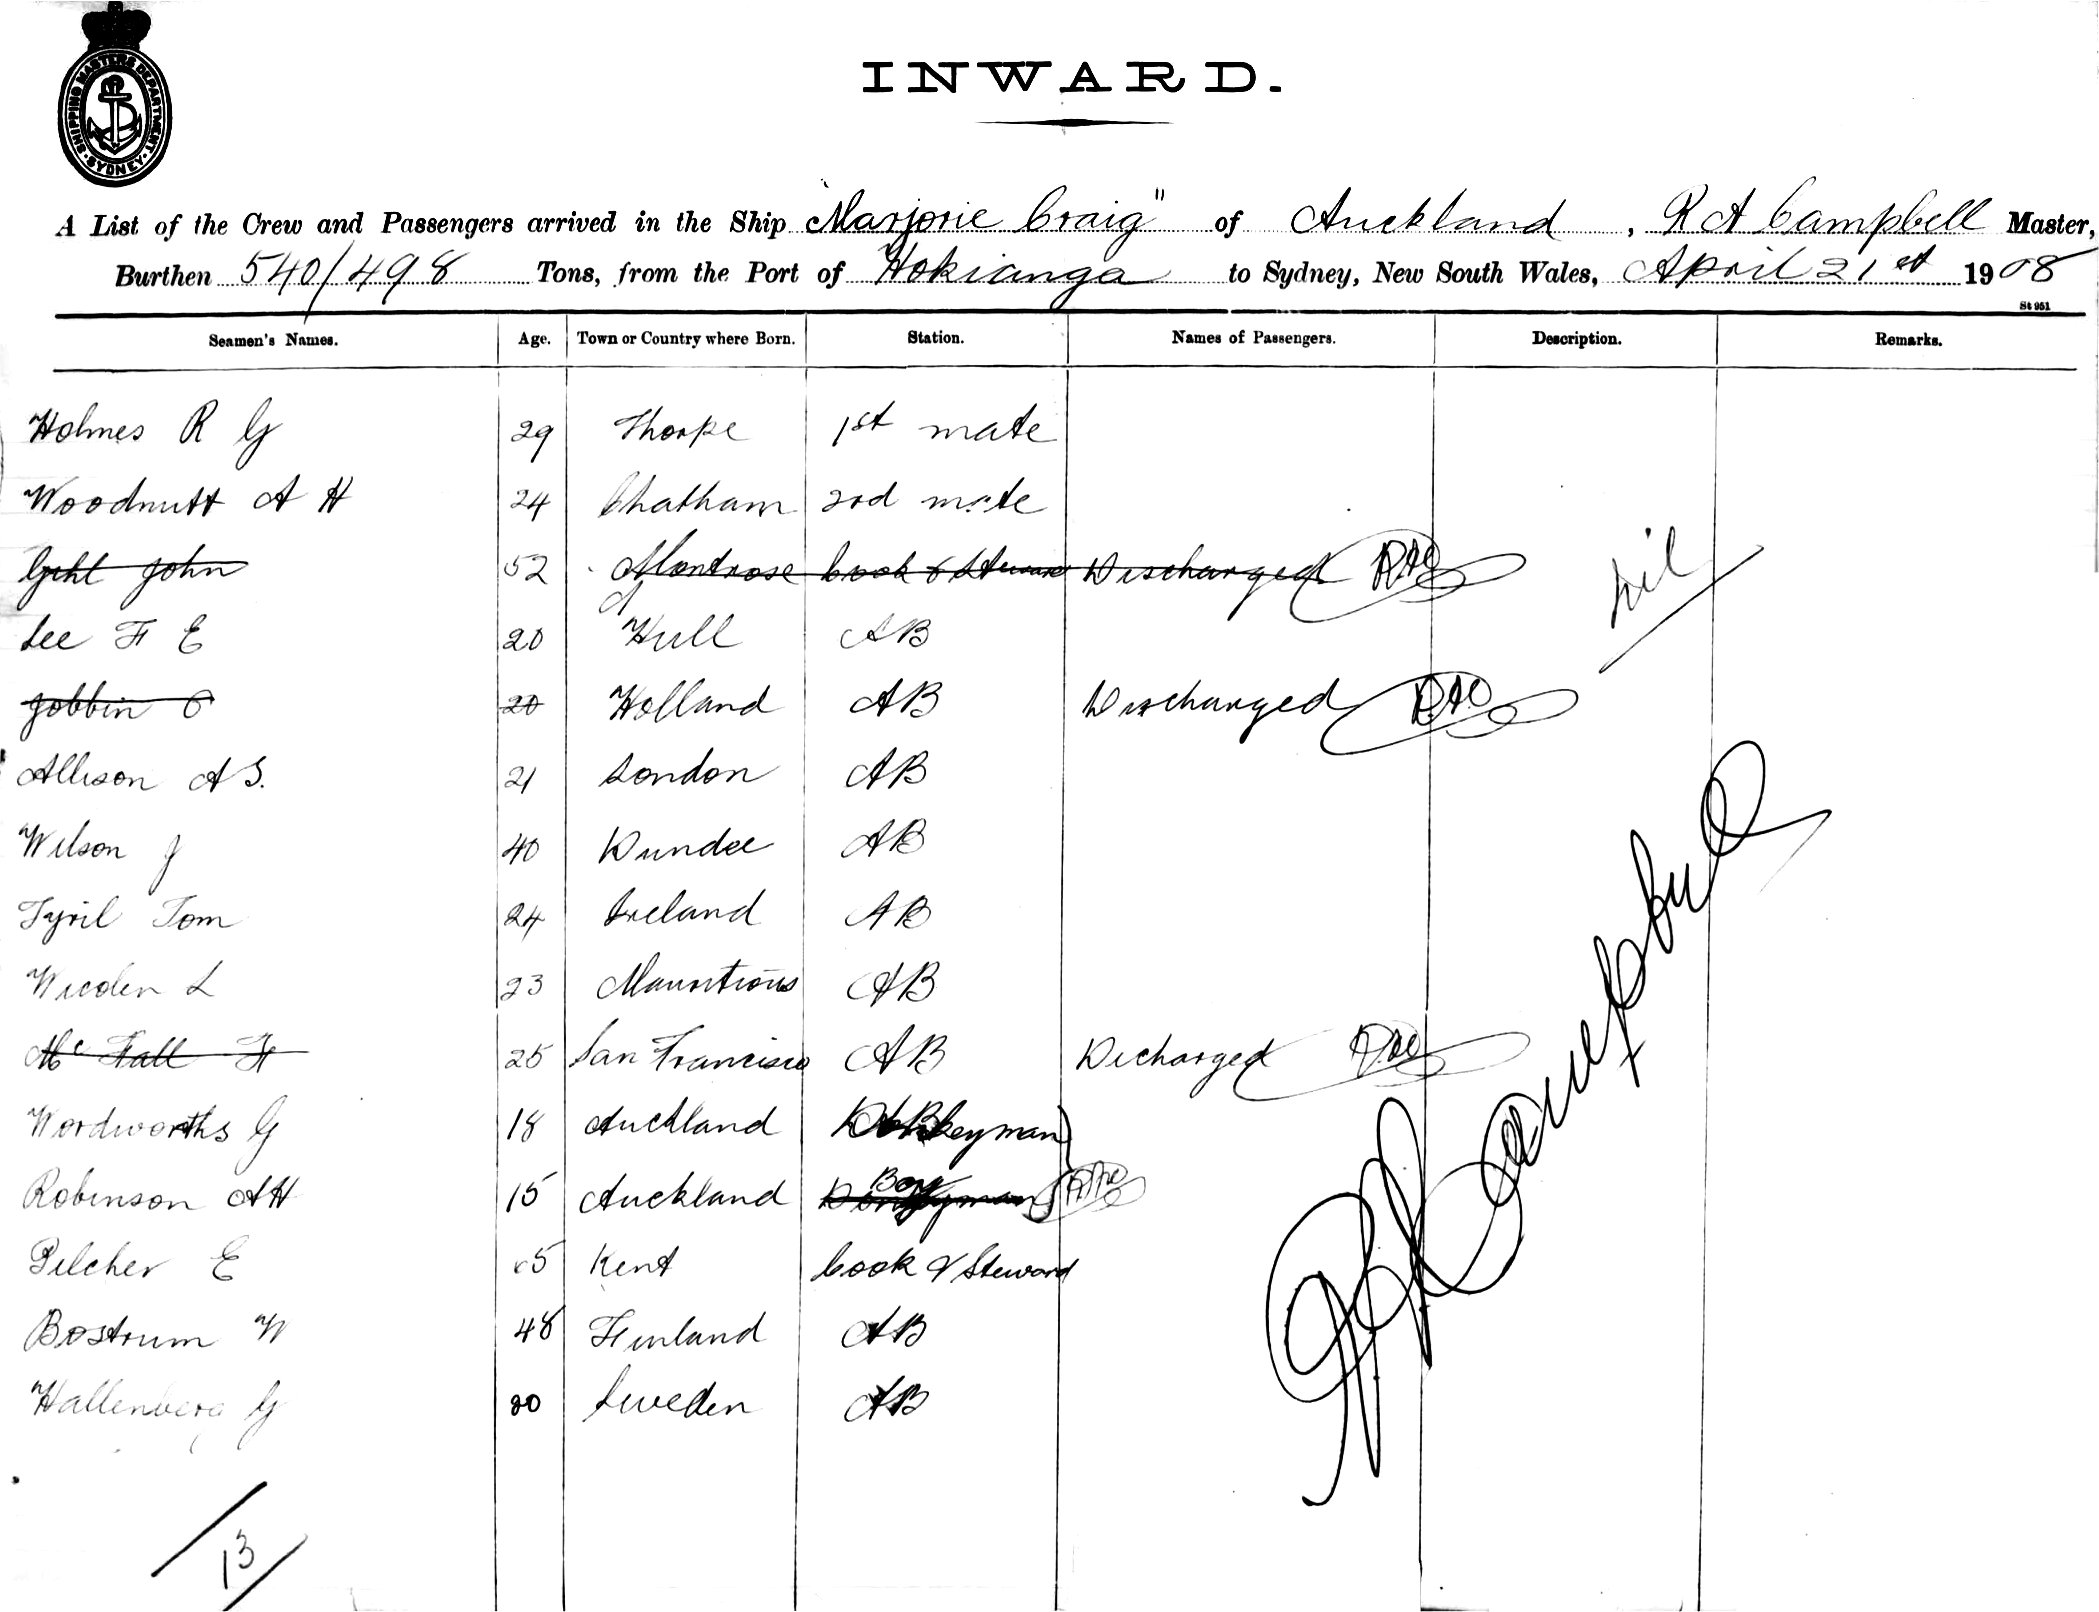 SHIPPING MASTERS DEPARTMENT
SYDNEY
INWARD.
A List of the Crew and Passengers arrived in the Ship "Marjorie Craig" of Auckland, R A Campbell Master,
Burthen 540/498 Tons, from the Port of Hokianga to Sydney, New South Wales, April 21st 1908
St 951
Seamen's Names. Age. Town or Country where Born. Station. Names of Passengers. Description. Remarks.
Holmes R G 29 Thorpe 1st mate
Woodnutt A H 24 Chatham 2nd mate
John 52 Montrose Cook & Steward Discharged RAC
nil
Lee F E 20 Hull AB
Jobbin O 20 Holland AB Discharged RAC
Allison A S. 21 London AB
Wilson J 40 Dundee AB
Tyril Tom 24 Ireland AB
L 23 Mauritious AB
McFall F 25 San Francisco AB Dicharged RAC
Wordworths G 18 Auckland AB
Robinson A H 15 Auckland Boy RAC
Pilcher E Kent Cook & Steward
Bostrum W 48 Finland AB
Hallenberg G Sweden AB
R A Campbell
13